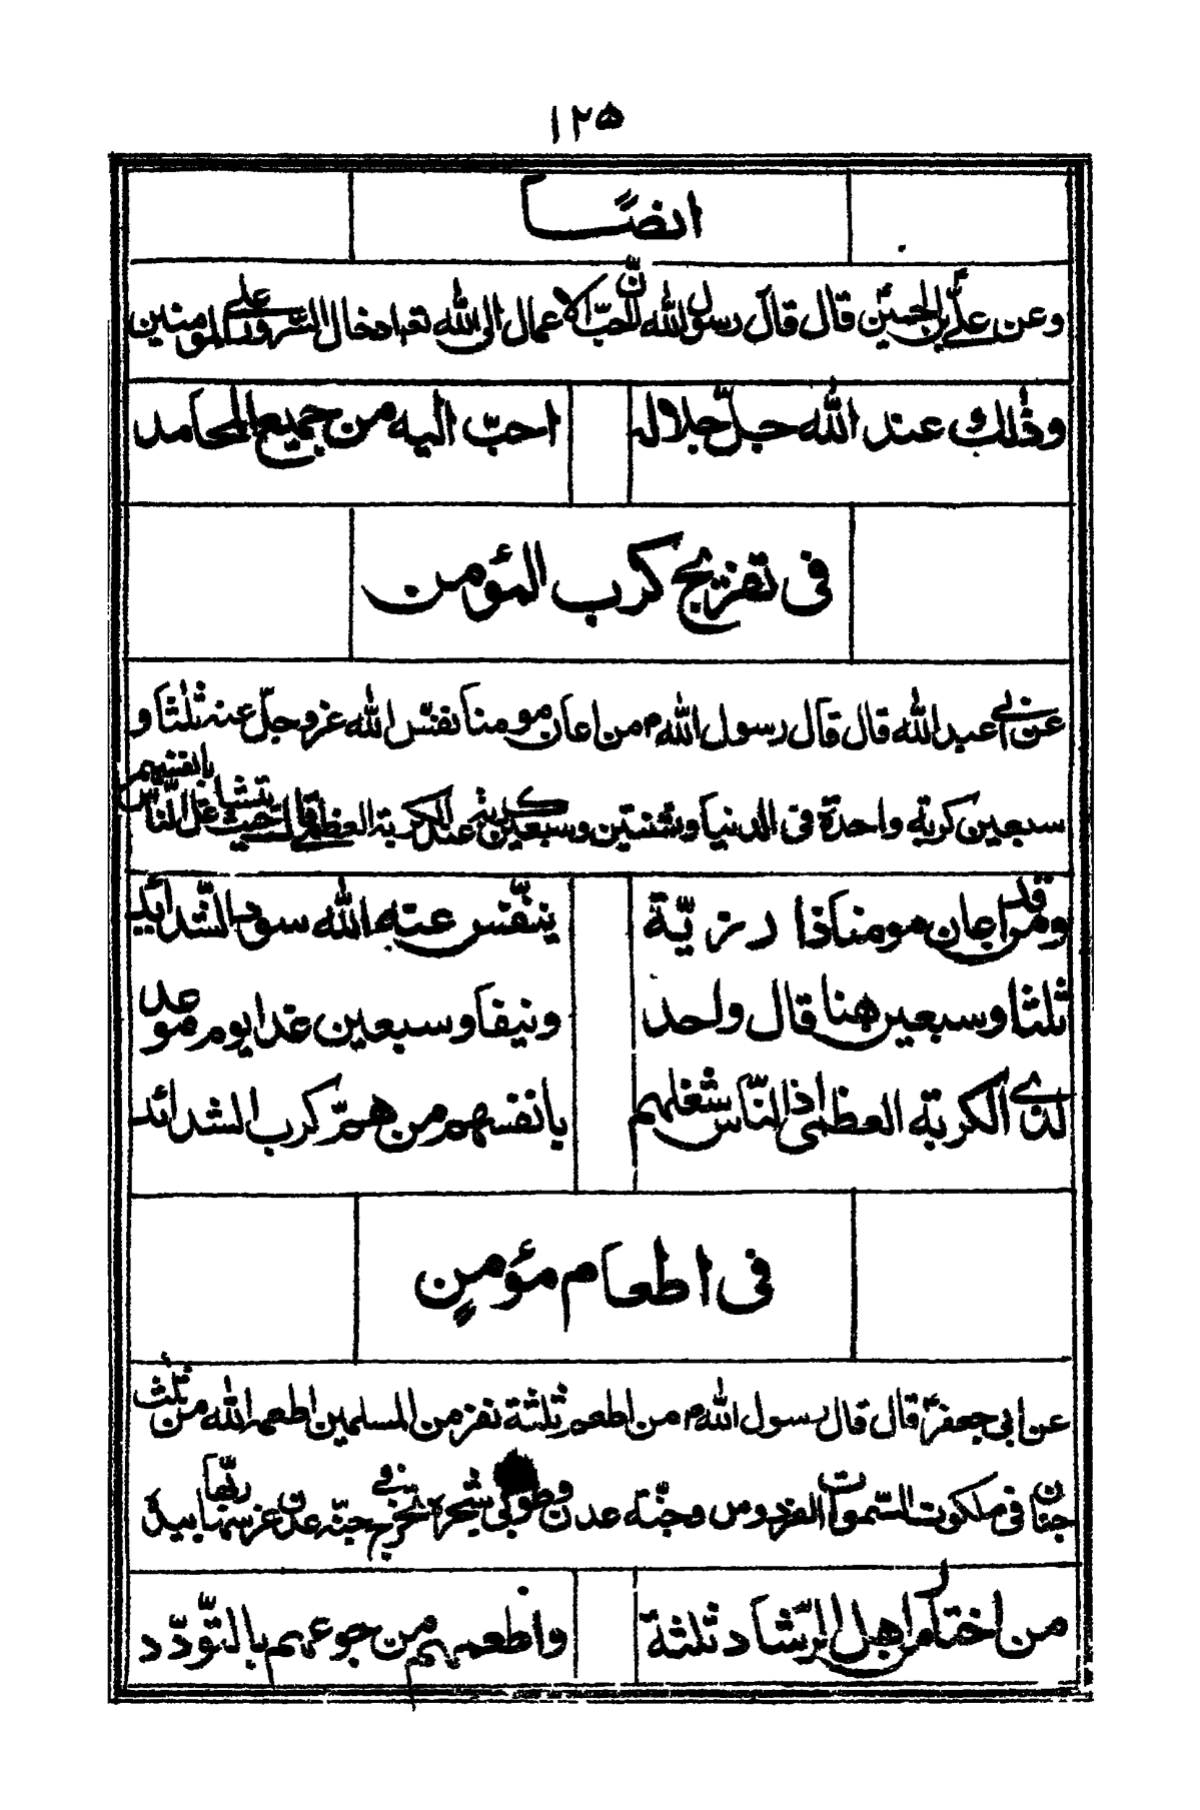 ١٢٥
ايضًا
وعن علي بن الحسين قال قال رسول الله ان احب الاعمال الى الله تعـ ادخال السّرور على المومنين
وذٰلك عند الله جلّ جلاله احبّ اليه من جميع المحامد
فى تفريج كرب المؤمن
عن ابى عبد الله قال قال رسول الله م من اعان مومنا نفّس الله عز وجلّ عنه ثلٰثا و
سبعين كربة واحدة فى الدنيا وثنتين وسبعين كربة عند الكربة العظمى قال حيث يتشاغل النّاس بانفسهم
ومن قد اعان مومنا ذا رزيّة ينفّس عنه الله سود الشّدائد
ثلثا وسبعين هنا قال واحد ونيفا وسبعين غدا يوم موعد
لدى الكربة العظمى اذ النّاس شغلهم بانفسهم من همّ كرب الشدائد
فى اطعام مؤمنٍ
عن ابى جعفر قال قال رسول الله م من اطعم ثلثة نفر من المسلمين اطعمه الله من ثلٰث
جنان فى ملكوت السّموات الفردوس وجنّة عدن وطوبى شجرة تخرج فى جنّة عدن غرسها ربّنا بيده
من اختار من اهل الرّشاد ثلثة واطعمهم من جوعهم بالتّودّد